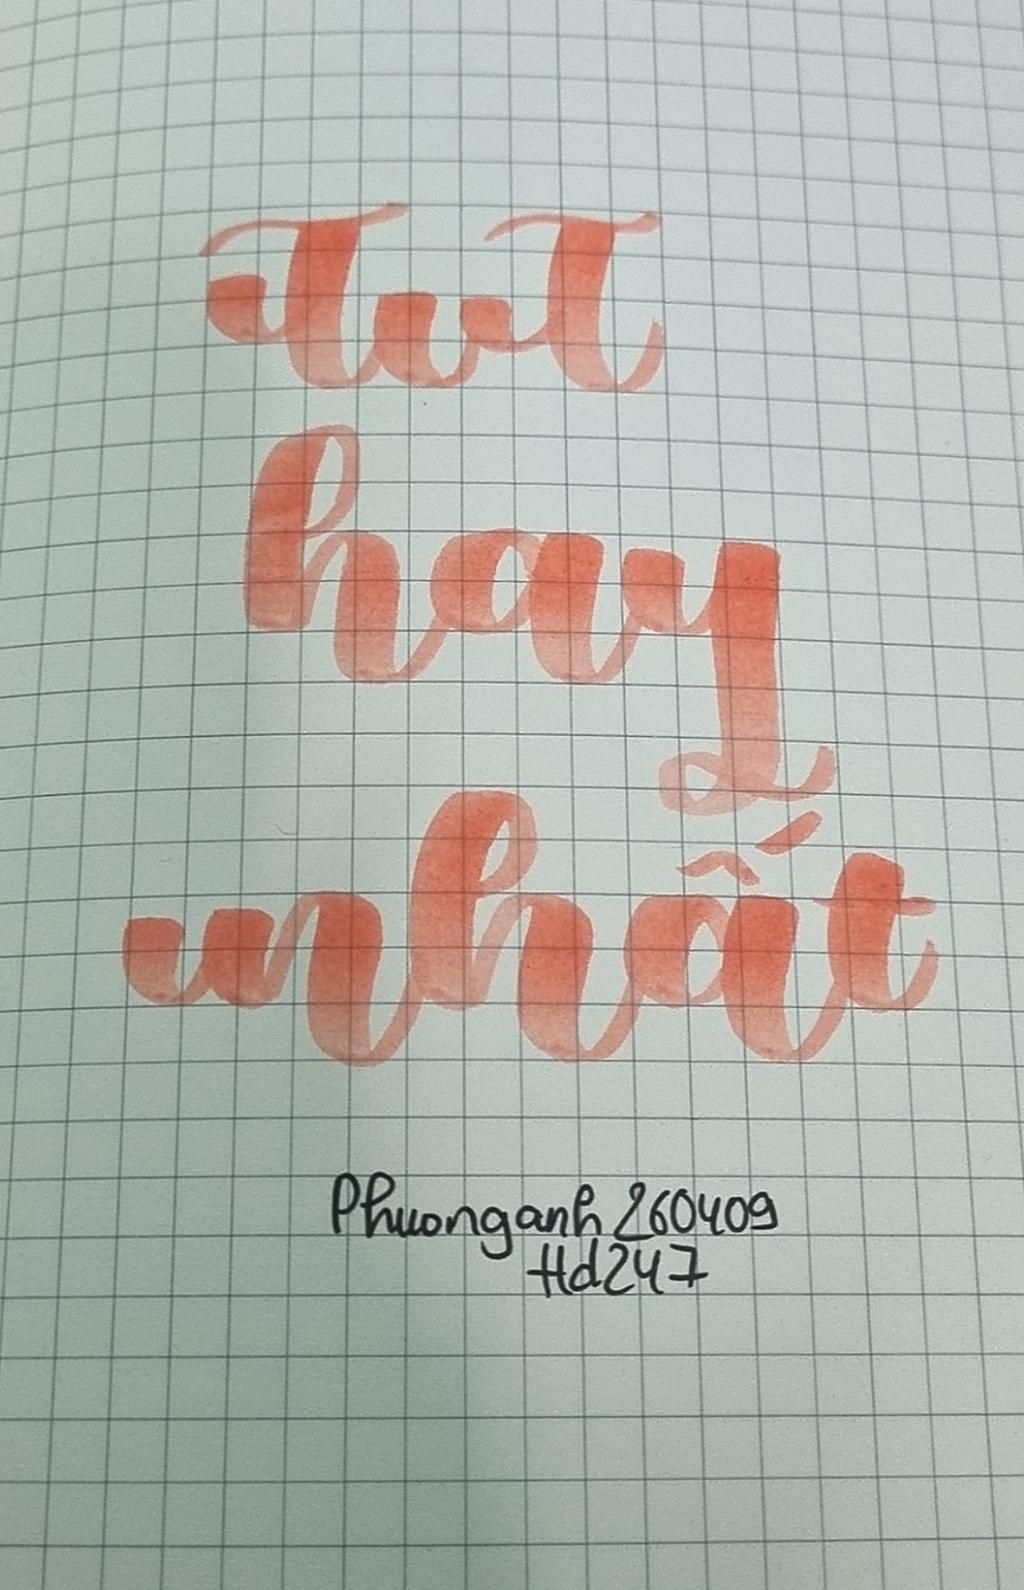 TvT
hay
nhất
Phuonganh260409
Hd247